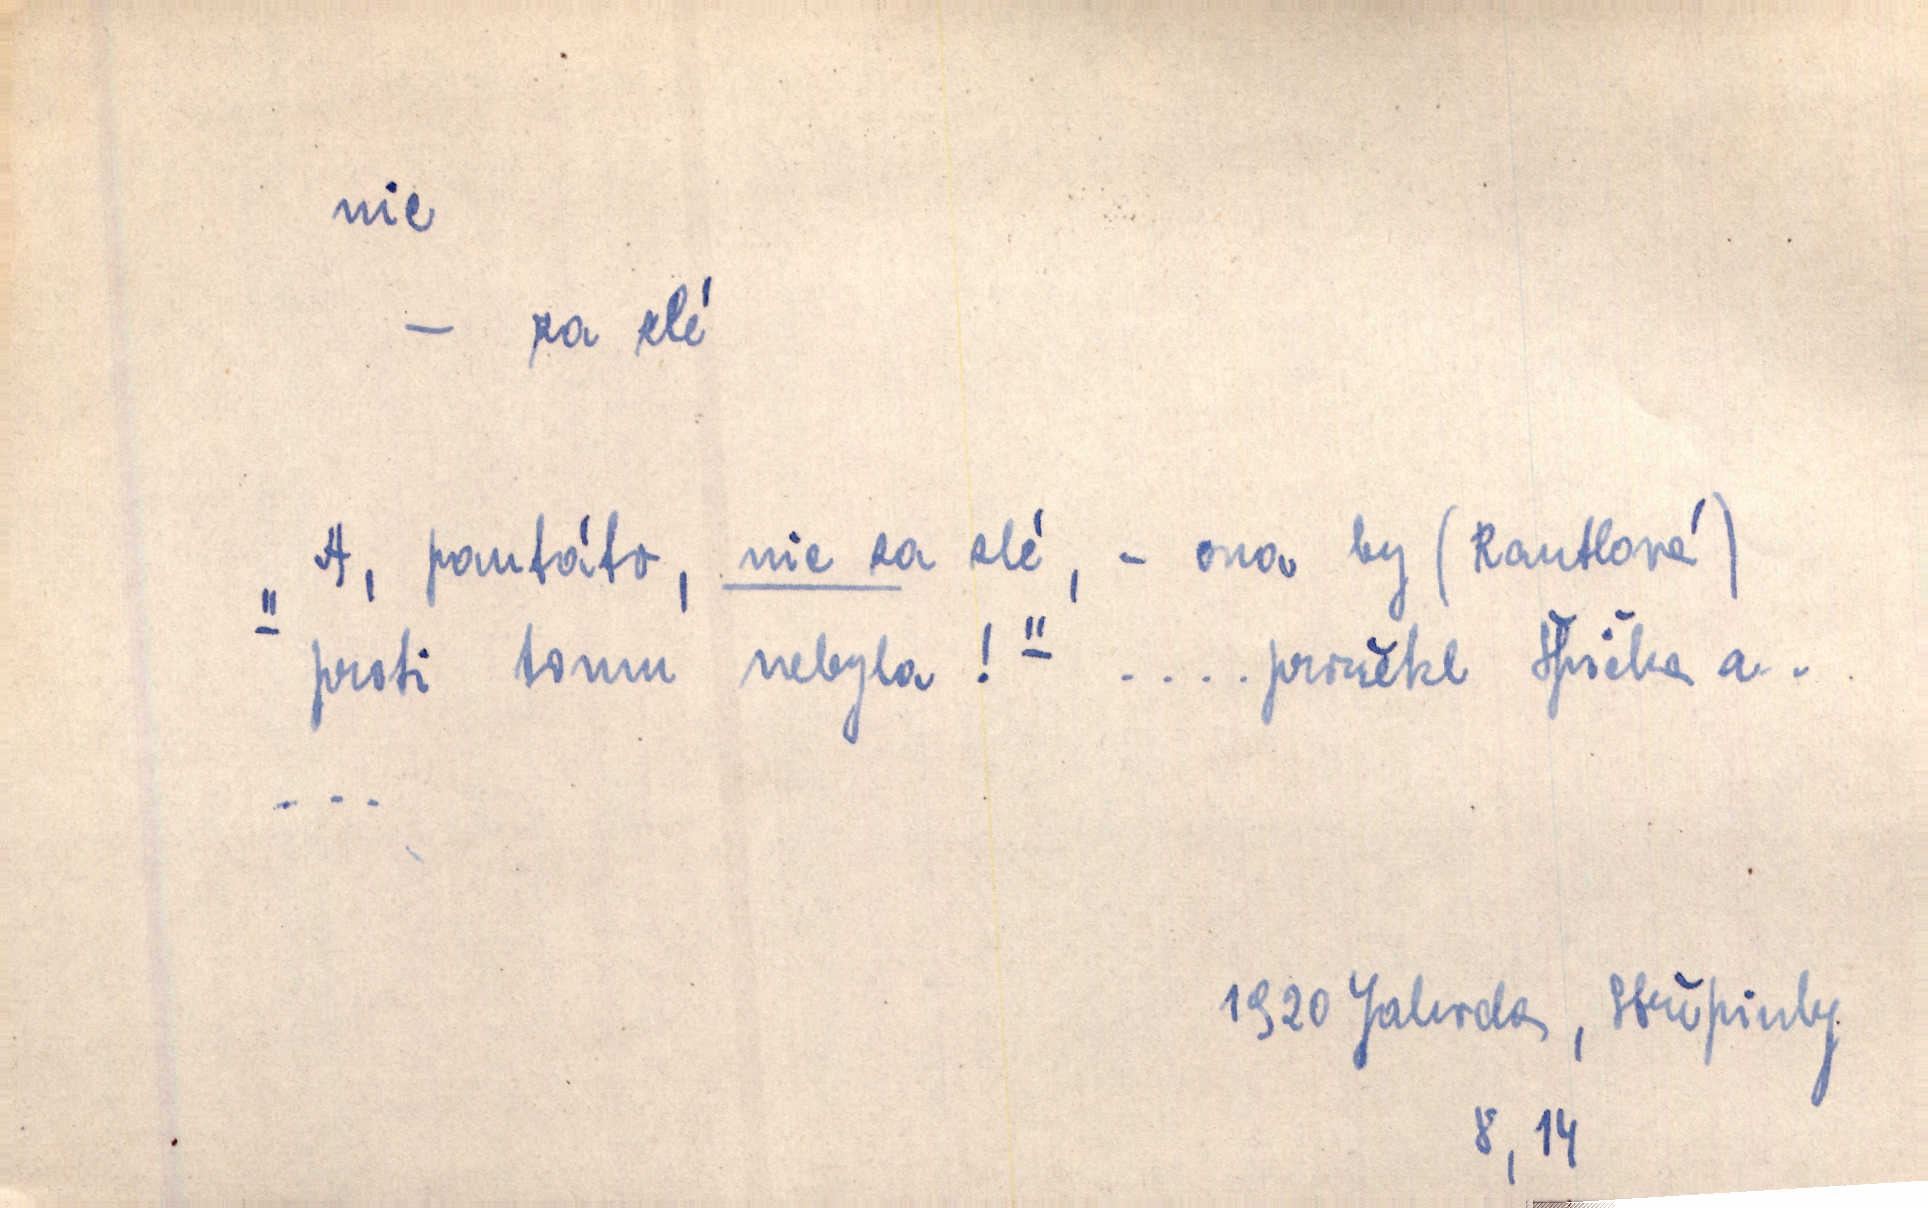 nic
— za zlé
" A, pantáto, nic za zlé, - ona by (Rautlová)
proti tomu nebyla!" .... prořekl Špička a..
....
1920 Jahoda, Stupínky
8, 14